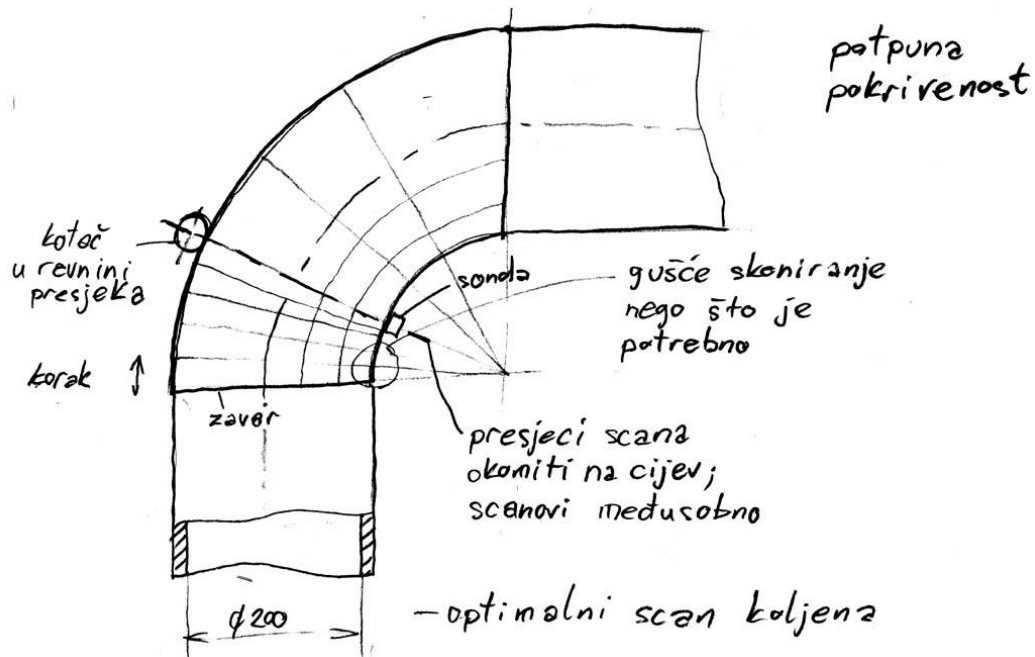 potpuna
pokrivenost
kotač
u ravnini
presjeka
sonda
gušće skaniranje
nego što je
potrebno
korak
zavar
presjeci scana
okomiti na cijev;
scanovi međusobno
ϕ200
- optimalni scan koljena